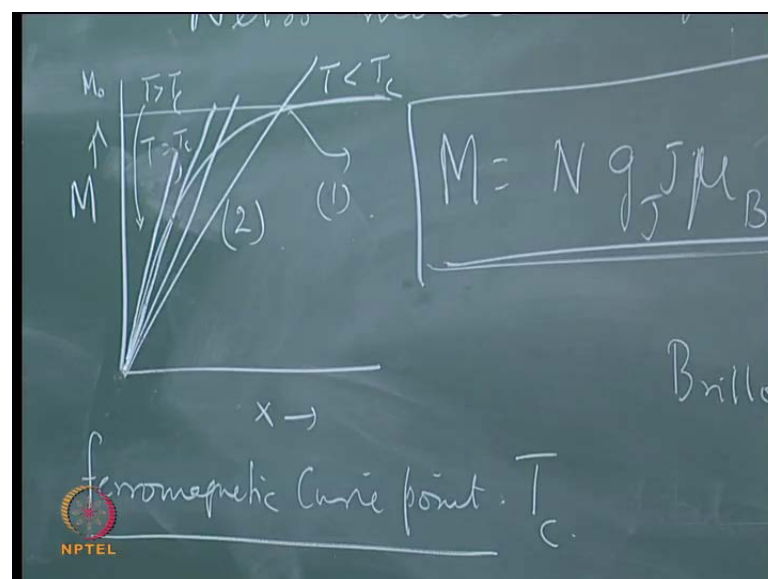 Weiss
M₀ T > T_c T < T_c
↑ T = T_c
M (2) (1)
M = N g_J J μ_B
x →
Brillo
ferromagnetic Curie point. T_c.
NPTEL